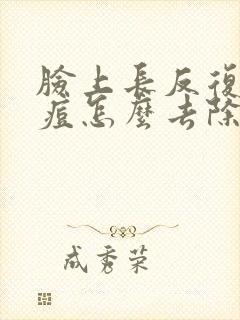 臉上長反復
痘怎麼去除
成秀荣